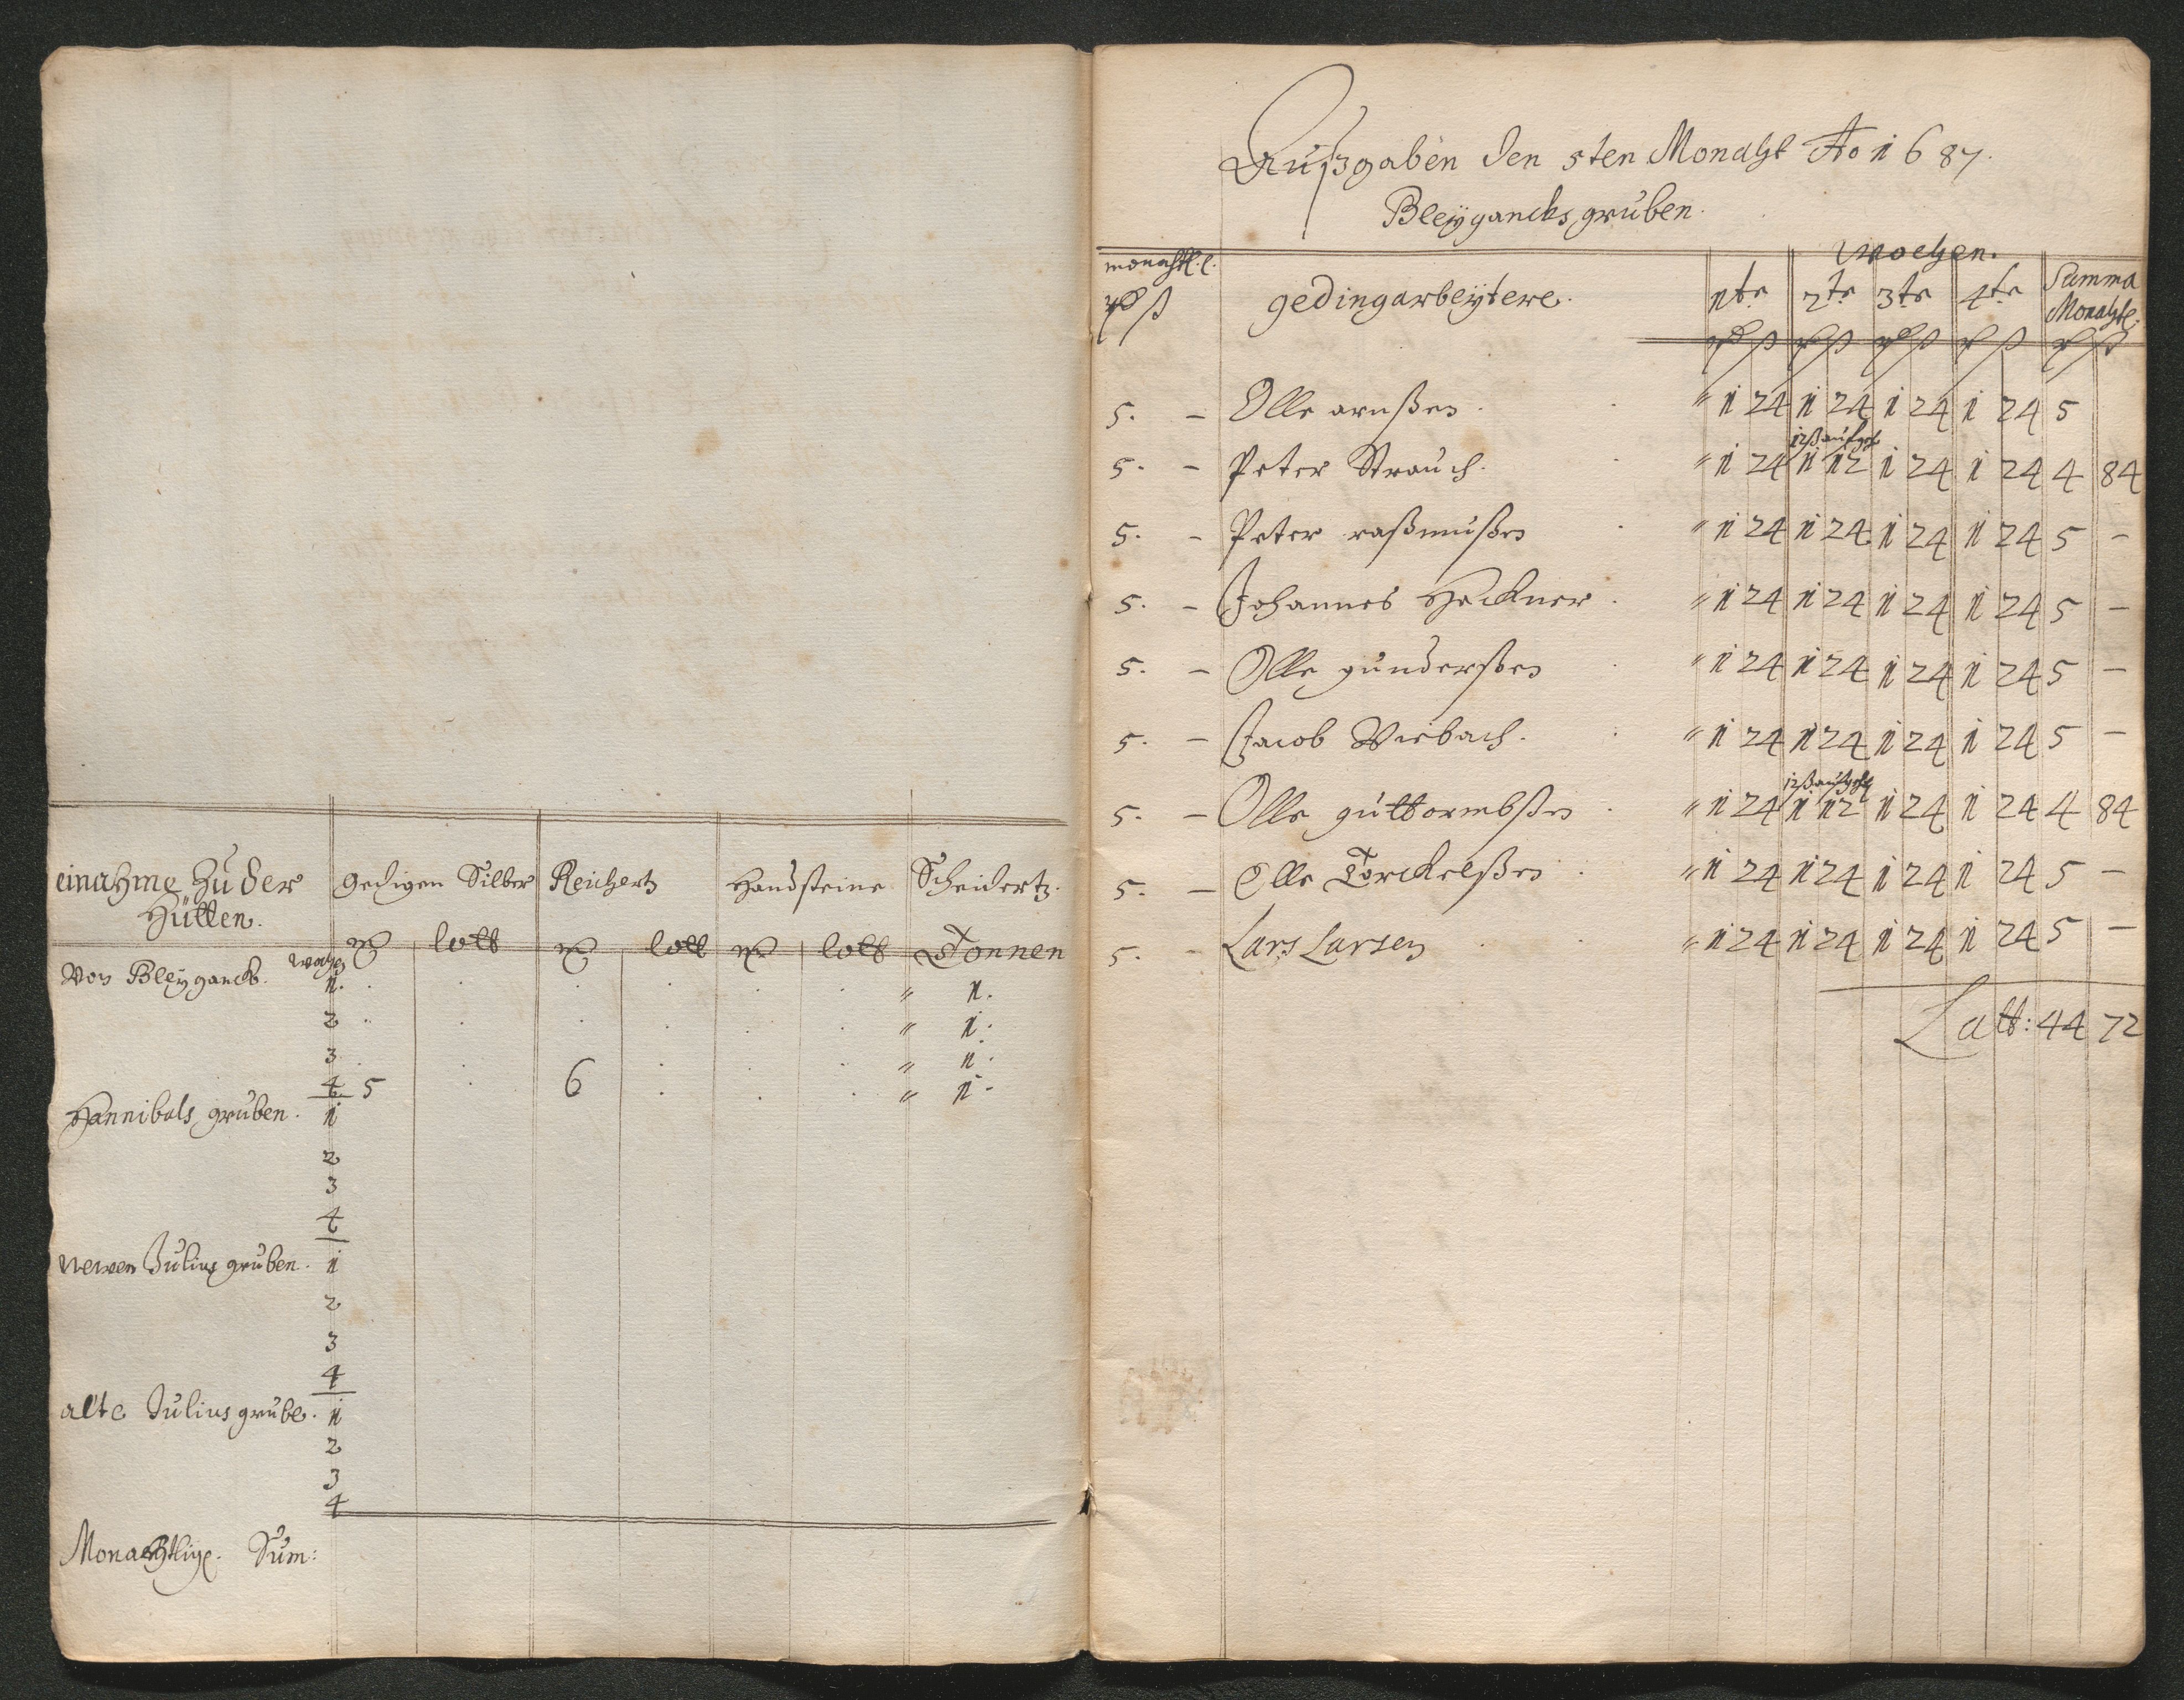 einahme Zu der Hütten.
gedigen Silber Reichertz Handsteine Scheidertz.
lott lott lott Tonnen
Von Bleyganck. wochen
1. . . . . . . " 1.
2 . . . . . . " 1.
3 . . . . . . " 1.
4 5 . 6 . . . " 1.
Hannibals gruben. 1
2
3
4
newen Julius gruben. 1
2
3
4
alte Julius grube. 1
2
3
4
Monachtlige. Sum:
Außgaben den 5ten Monaht Ao 1687.
Bleygancks gruben.
monahtl. wochen.
gedingarbeytere. 1te 2te 3te 4te Summa Monahtl.
5. - Olle arnßen. " 1 24 1 24 1 24 1 24 5
12ß aufgeh
5. - Peter Strauch. " 1 24 1 12 1 24 1 24 4 84
5. - Peter raßmußen " 1 24 1 24 1 24 1 24 5 -
5. - Johannes Heckner. " 1 24 1 24 1 24 1 24 5 -
5. - Olle gunderßen " 1 24 1 24 1 24 1 24 5 -
5. - Jacob Wiebach. " 1 24 1 24 1 24 1 24 5 -
12ß aufgeh
5. - Olle guttormbßen " 1 24 1 12 1 24 1 24 4 84
5. - Olle Torckelßen " 1 24 1 24 1 24 1 24 5 -
5. - Lars Larsen " 1 24 1 24 1 24 1 24 5 -
Latt: 44 72